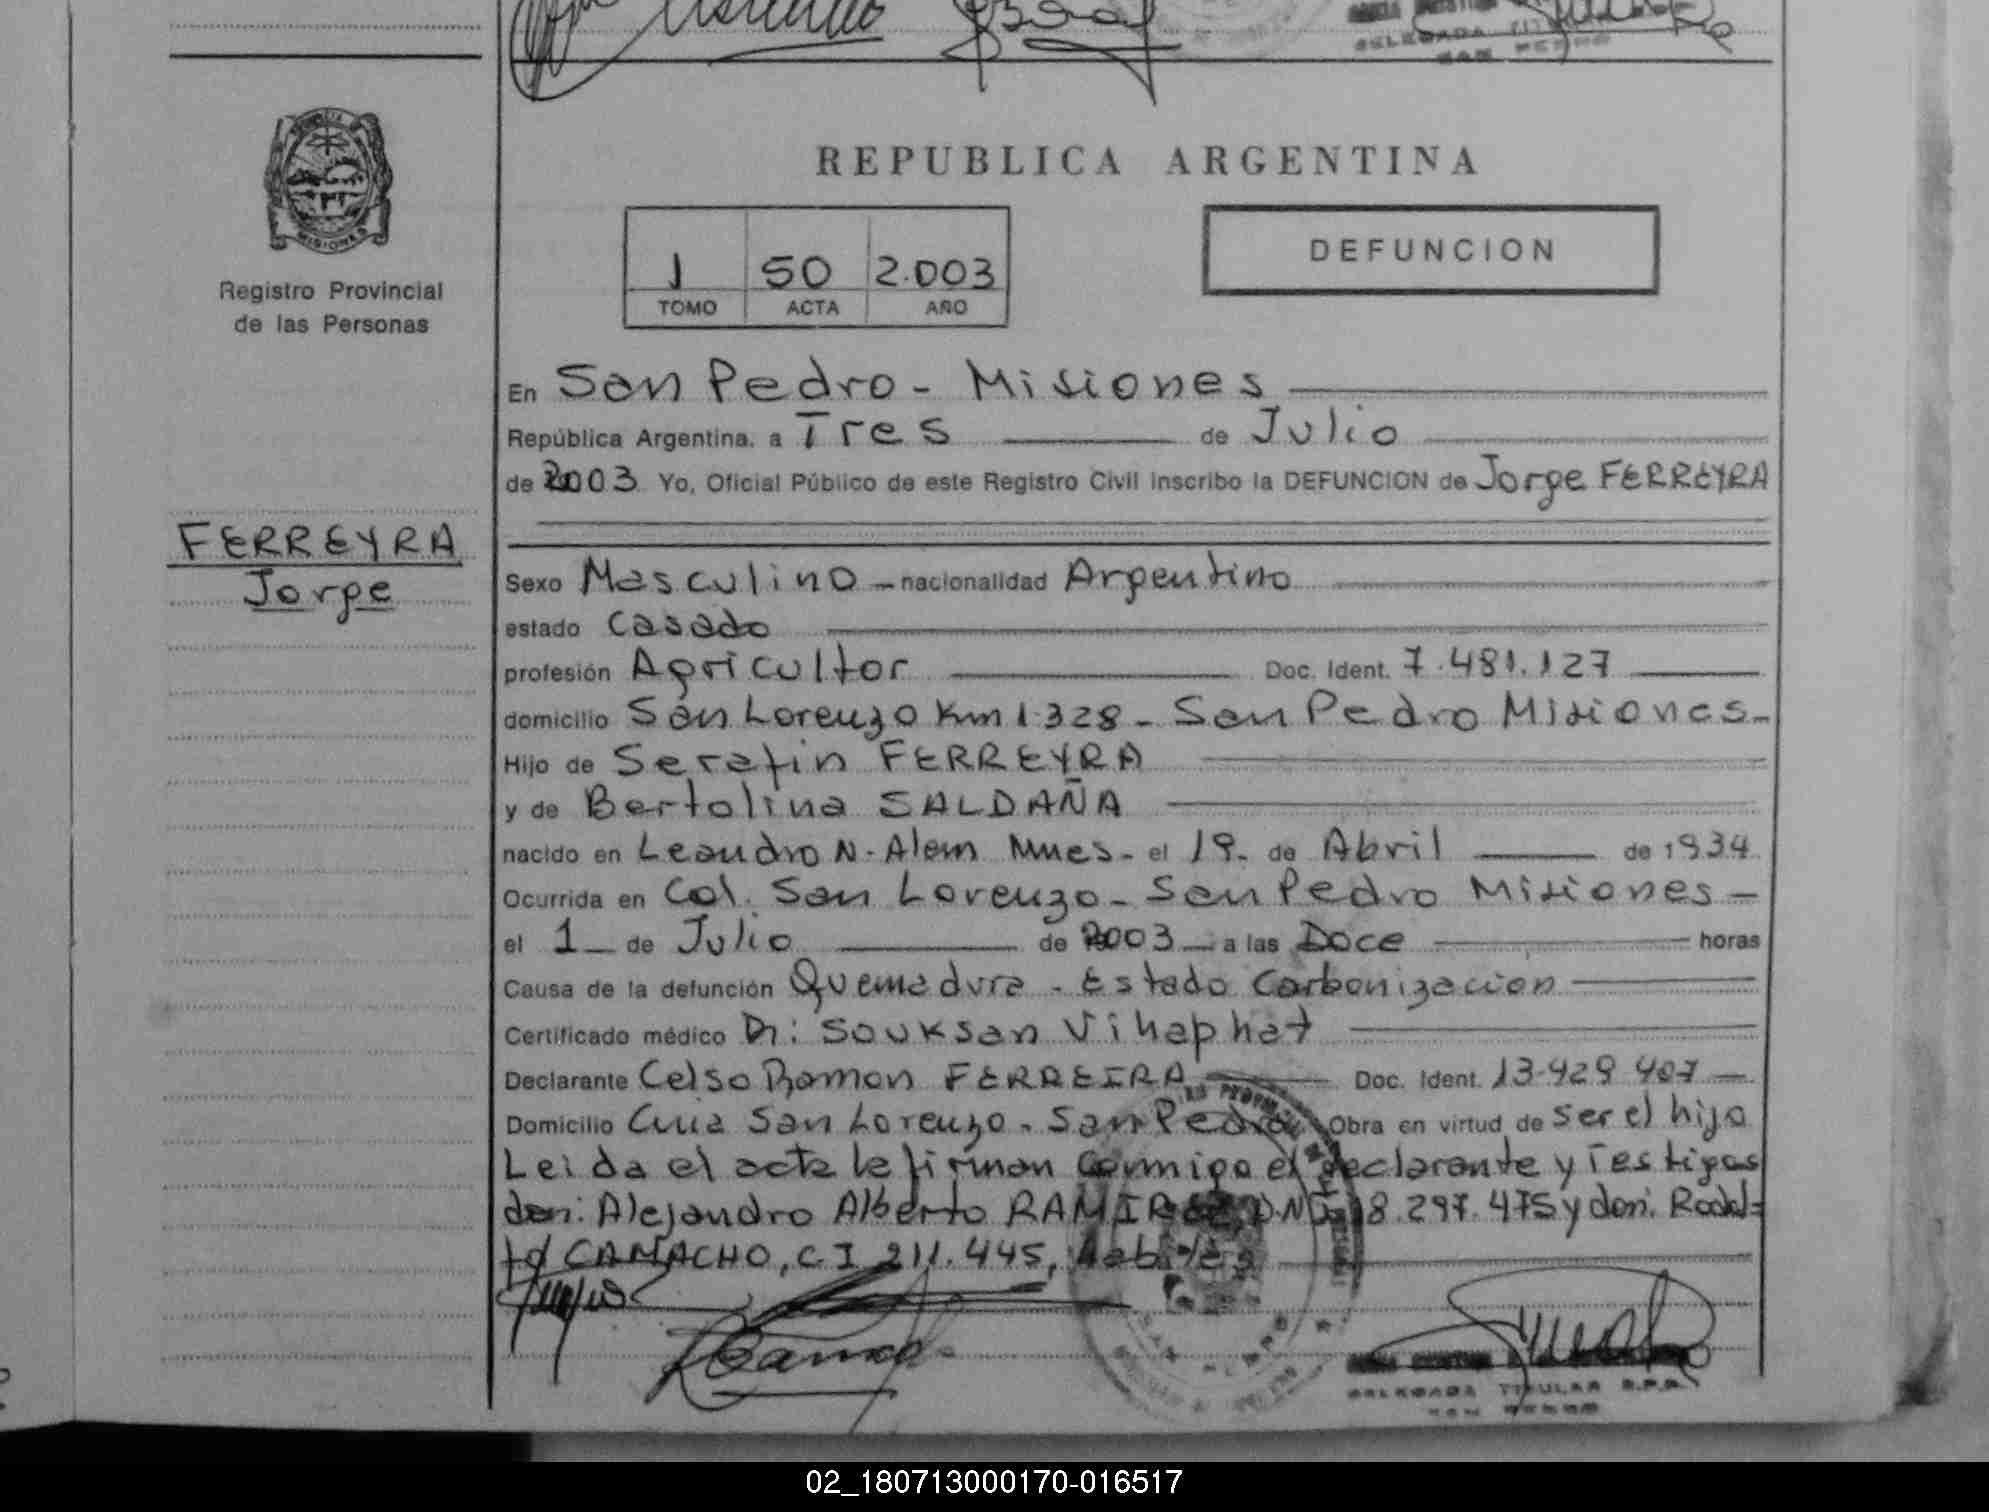 DELEGADA TITULAR
SAN PEDRO
MISIONES
Registro Provincial
de las Personas
REPUBLICA ARGENTINA
1 50 2.003
TOMO ACTA AÑO
DEFUNCION
FERREYRA
Jorge
En San Pedro - Misiones
República Argentina, a Tres de Julio
de 2003 Yo, Oficial Público de este Registro Civil inscribo la DEFUNCION de Jorge FERREYRA
Sexo Masculino - nacionalidad Argentino
estado Casado
profesión Agricultor Doc. Ident. 7.481.127
domicilio San Lorenzo Km 1328 - San Pedro Misiones -
Hijo de Serafin FERREYRA
y de Bertolina SALDAÑA
nacido en Leandro N. Alem Mnes - el 19 - de Abril de 1934
Ocurrida en Col. San Lorenzo - San Pedro Misiones -
el 1 - de Julio de 2003 - a las Doce horas
Causa de la defunción Quemadura - Estado Carbonizacion
Certificado médico Dr: Souksan Vihaphat
Declarante Celso Ramon FERREIRA Doc. Ident. 13.429.407 -
Domicilio San Lorenzo - San Pedro Obra en virtud de ser el hijo
Leida el acta la firman conmigo el declarante y Testigos
don: Alejandro Alberto RAMIREZ, D.N.I. 18.297.475 y don: Rodol=
fo CAMACHO, C.I 211.445, habiles
DELEGADA TITULAR R.P.P.
SAN PEDRO
02_180713000170-016517